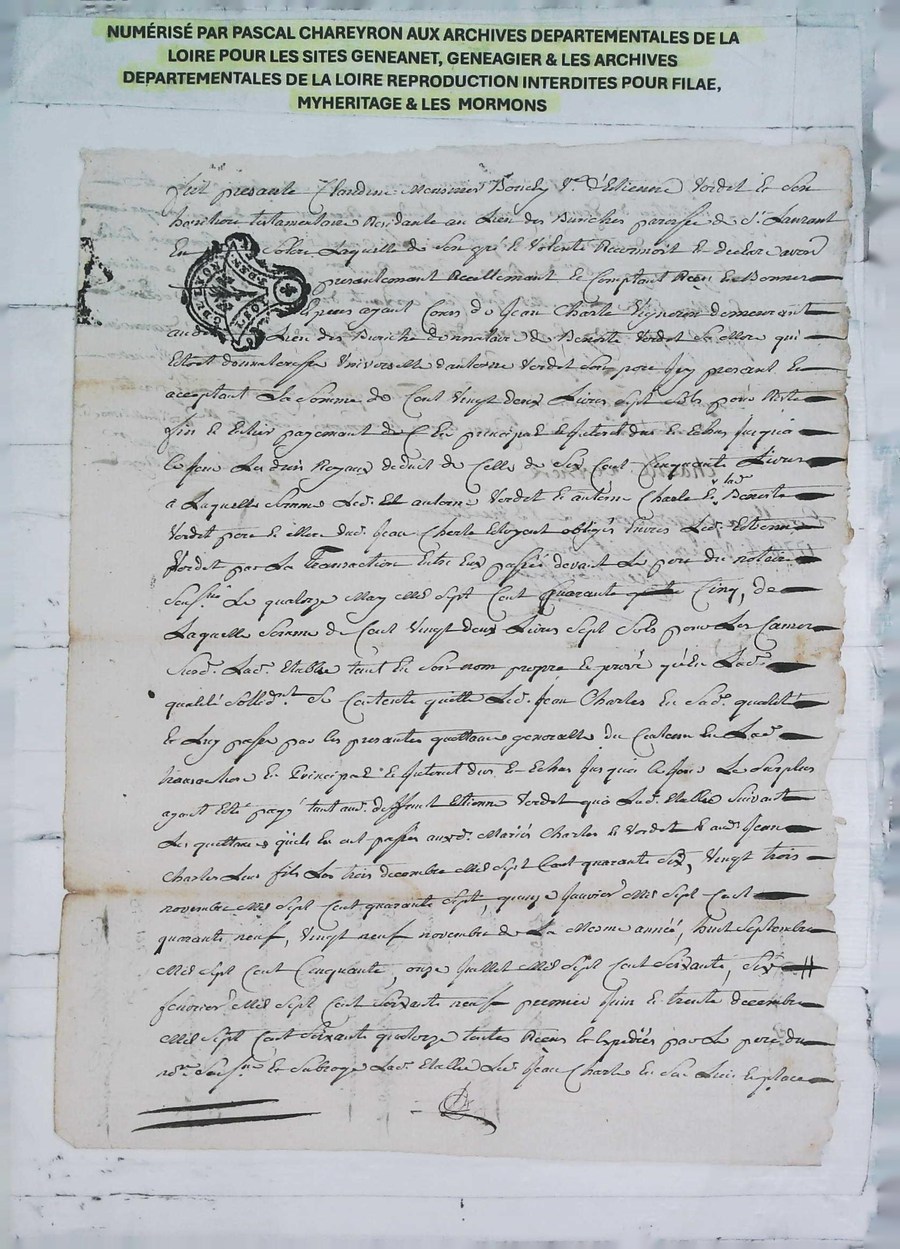 NUMÉRISÉ PAR PASCAL CHAREYRON AUX ARCHIVES DEPARTEMENTALES DE LA
LOIRE POUR LES SITES GENEANET, GENEAGIER & LES ARCHIVES
DEPARTEMENTALES DE LA LOIRE REPRODUCTION INTERDITES POUR FILAE,
MYHERITAGE & LES MORMONS
fut presante Claudine d'Etienne Verdet et son
heritiere testamentaire Residante au Lieu des paroisse de St Laurant
En Laquelle de son gré et Volonté Reconnoit et declare avoir
G DE LYON
presentement Reellement et Comptant Receu en Bonnes
Especes ayant Cours de Jean Charle demeurant
aud Lieu des donnataire de Benoite Verdet sa mere qui
Etoit donnateresse Universelle d'antoine Verdet son pere Icy presant et
acceptant La Somme de Cent Vingt deux Livres sept sols pour Reste
fin et Entier payement de principal et Interet dus et Echus Jusqua
Ce Jour Les droits Royaux deduit de Celle de Six Cent Cinquante Livres
a Laquelle Somme Led. antoine Verdet et antoine Charle et Benoite
lad
Verdet pere et mere dud. Jean Charle Etoyent obligés Envers Led. Etienne
Verdet par La Transaction Entre Eux passée devant Le pere du notaire
Le quatorze May Mil Sept Cent Quarante Cinq, de
Laquelle Somme de Cent Vingt deux Livres Sept Sols pour Les Causes
Lad. tant En Son nom propre et privé qu'en Lad.
qualité se Contente quitte Led. Jean Charles En Sad. qualité
Et Luy passe par les presantes quittance generalle du Contenu En Lad.
transaction En Principal et Interet dus et Echus Jusqua Ce Jour Le Surplus
ayant Eté payé tant aud. deffunt Etienne Verdet qua Lad. Suivant
Les quittances qu'ils En ont passées auxd. Mariés Charles et Verdet et aud. Jean
Charles Leur fils Les trois decembre Mil Sept Cent quarante Six, Vingt trois
novembre Mil Sept Cent quarante Sept, quinze Janvier Mil Sept Cent
quarante neuf, Vingt neuf novembre de La Meme année, huit Septembre
Mil Sept Cent Cinquante, onze Juillet Mil Sept Cent Soixante, Six
fevrier Mil Sept Cent Soixante neuf premier Juin et trente decembre
Mil Sept Cent Soixante quatorze toutes Receus et Expediés par Le pere du
Et Subroge Lad. Led. Jean Charle En Son Lieu et place